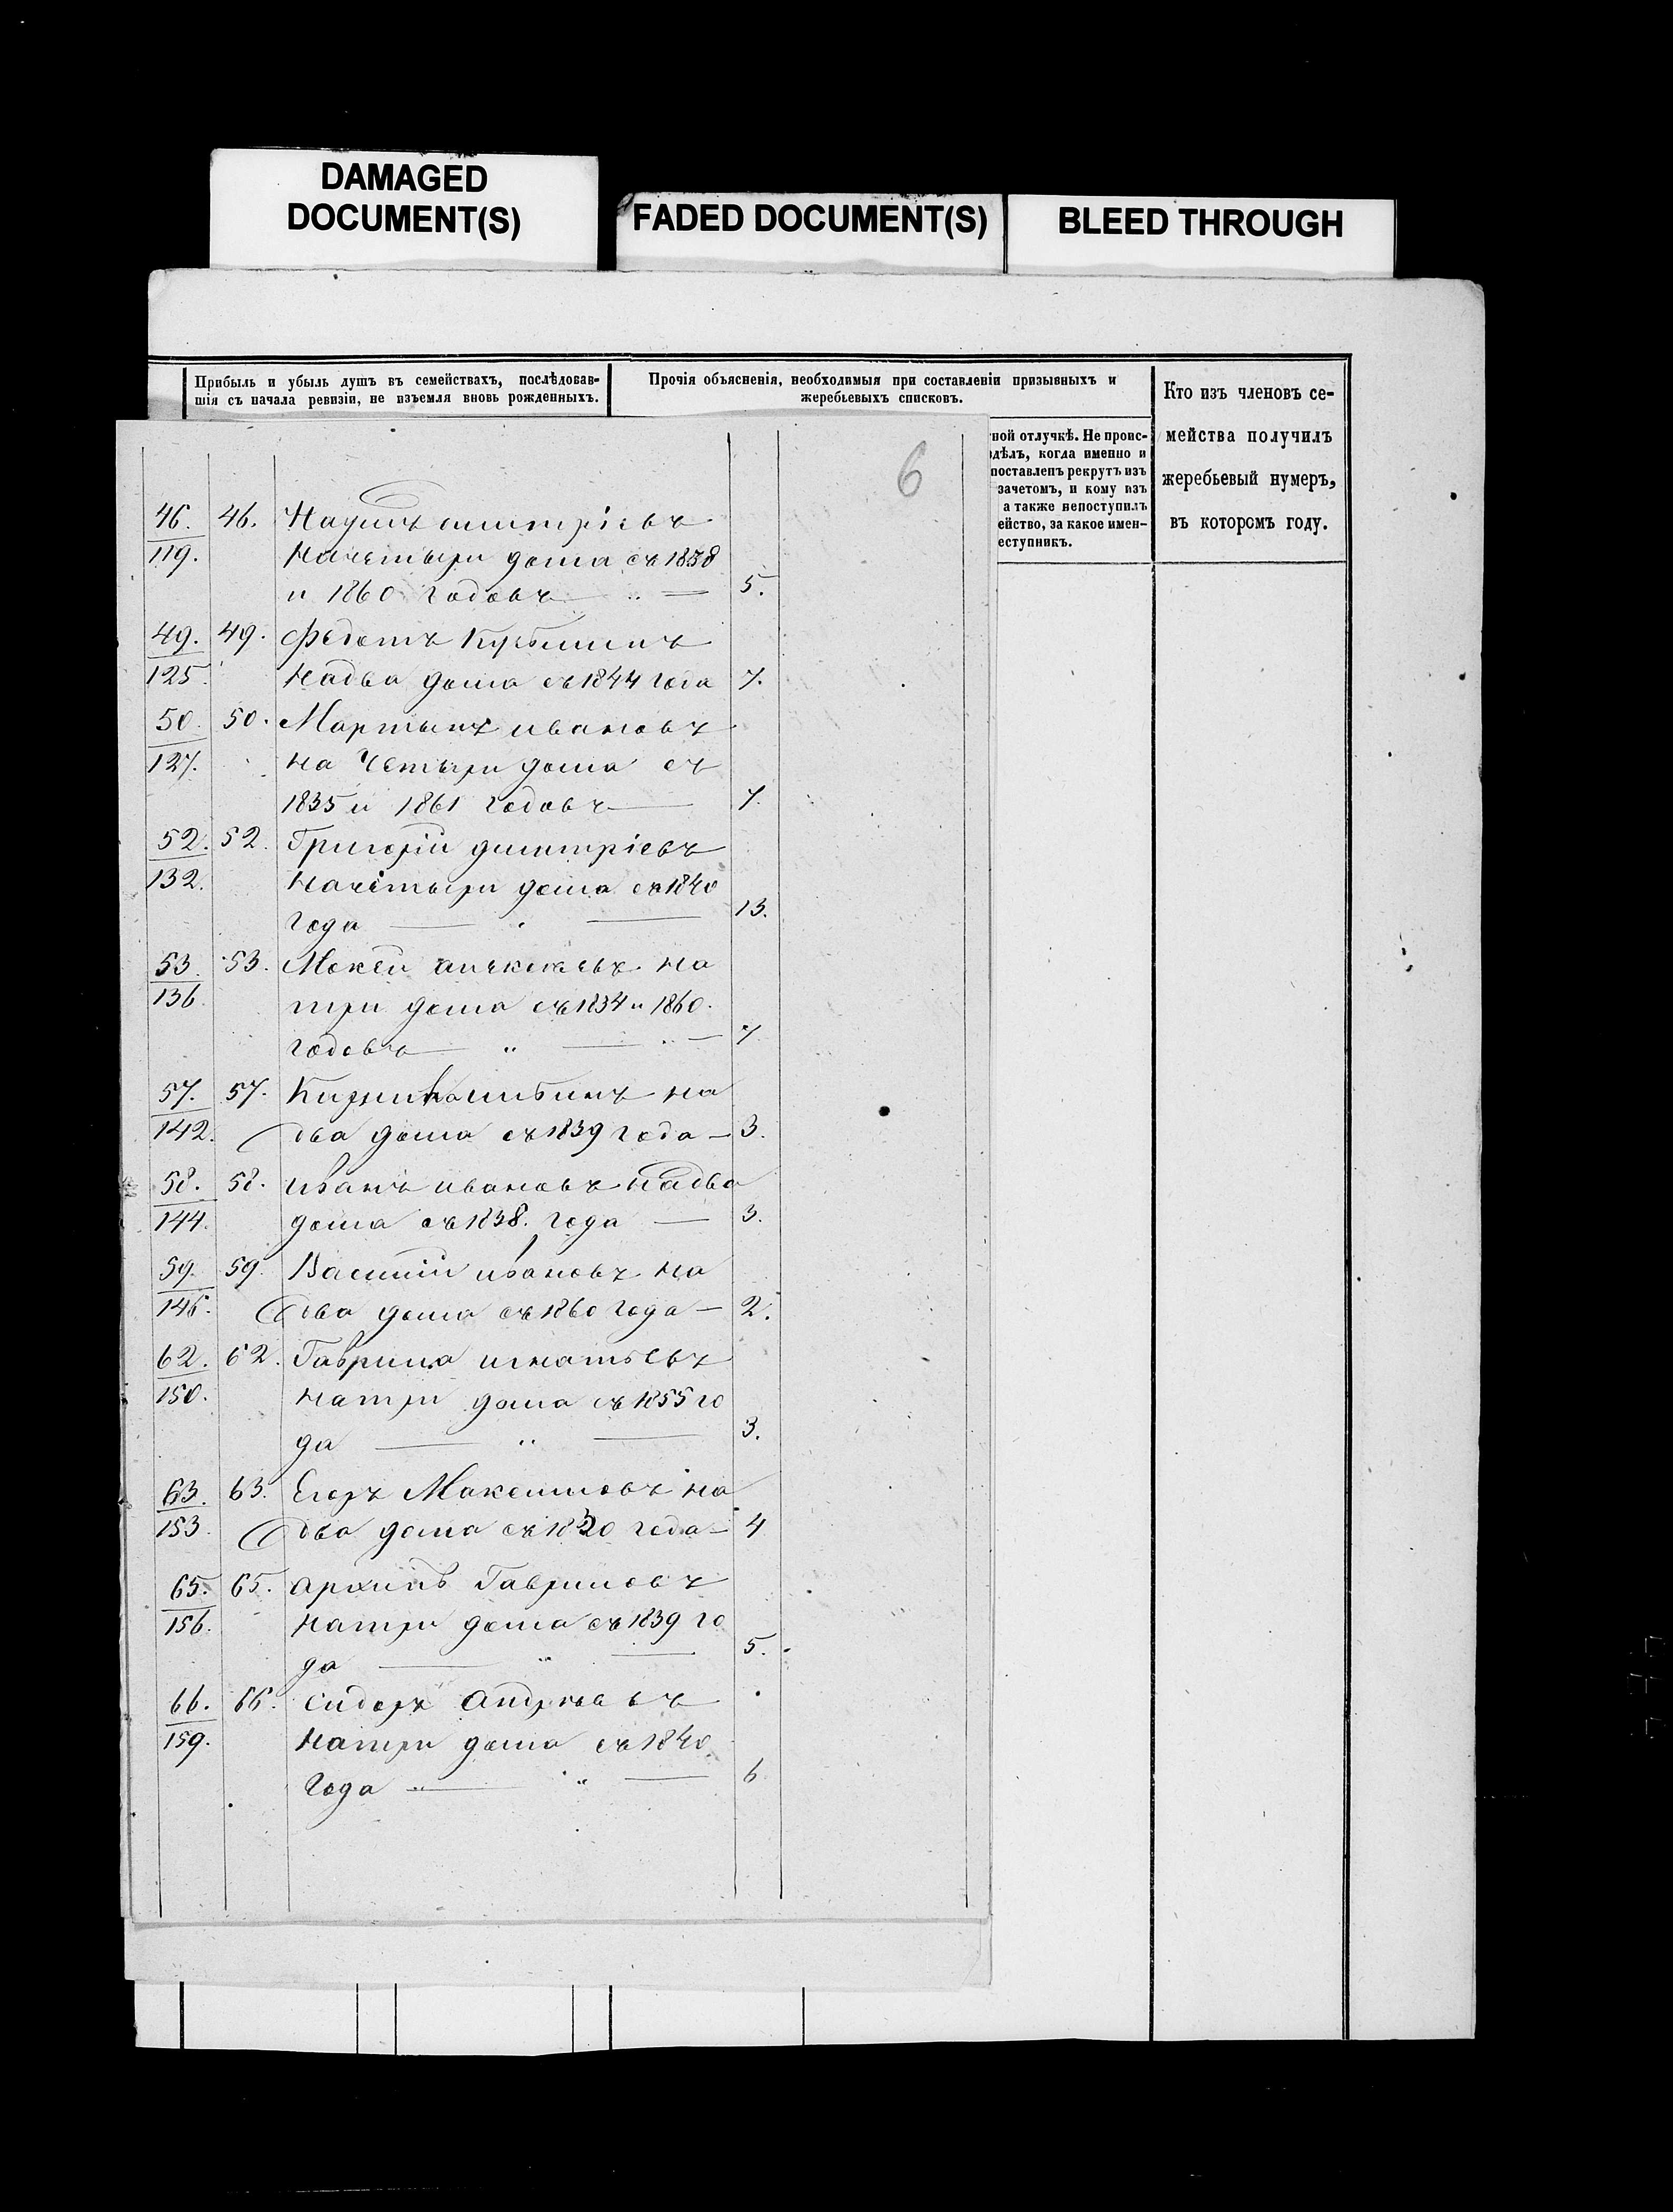 DAMAGED
DOCUMENT(S)
FADED DOCUMENT(S)
BLEED THROUGH
Прибыль и убыль душъ въ семействахъ, послѣдовав-
шія съ начала ревизіи, не изъемля вновь рожденныхъ.
Прочія объясненія, необходимыя при составленіи призывныхъ и
жеребьевыхъ списковъ.
Кто изъ членовъ се-
мейства получилъ
жеребьевый нумеръ,
въ которомъ году.
ной отлучкѣ. Не проис-
дѣлъ, когда именно и
поставленъ рекрутъ изъ
зачетомъ, и кому изъ
а также непоступилъ
ейство, за какое имен-
еступникъ.
6
46. 46. Наумъ дмитріевъ
119. Начетыри дома съ 1838
и 1860 годовъ 5.
49. 49. Федотъ Кузьминъ
125. Надва дома съ 1844 года 7.
50. 50. Мартынъ ивановъ
127. на Четыри дома съ
1835 и 1861 годовъ 7.
52. 52. Григорій димитріевъ
132. Начетыри дома съ 1840
года 13.
53. 53. Мокей алексѣевъ на
136. три дома съ 1834 и 1860
годовъ 7
57. 57. на
142. два дома съ 1839 года 3.
58. 58. иванъ ивановъ надва
144. дома съ 1838. года 3.
59. 59. Василій ивановъ на
146. два дома съ 1860 года 2.
62. 62. Гаврила игнатьевъ
150. Натри дома съ 1855 го
да 3.
63. 63. Егоръ Максимовъ на
153. два дома съ года 4
65. 65. архипъ Гавриловъ
156. Натри дома съ 1839 го
да 5.
66. 66. сидоръ андреевъ
159. Натри дома съ 1840
года 6